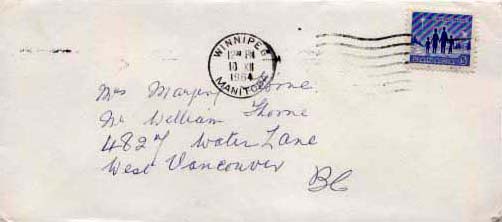 WINNIPEG
12 PM
10 XII
1964
MANITOBA
Mrs Marjory Thorne
Mr William Thorne
4827 Water Lane
West Vancouver
BC